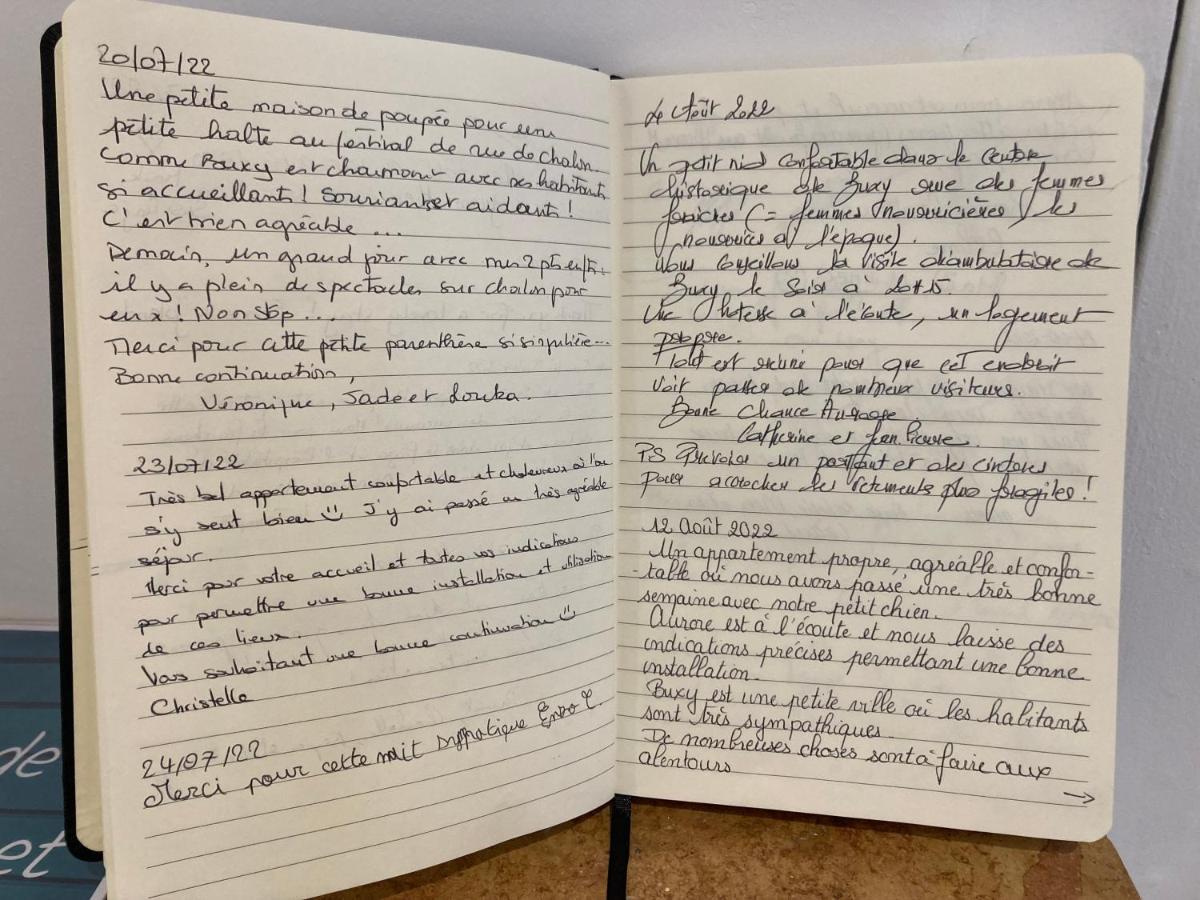 20/07/22
Une petite maison de poupée pour une
petite halte au festival de rue de chalon.
Comme Bouxy est charmant avec ses habitants
si accueillant! Souriant et aidants!
C'est bien agréable ...
Demain, un grand jour avec mes 2 ptts enfts.
il y a plein de spectacles sur chalon pour
eux! Non Stop...
Merci pour cette petite parenthère si singulière...
Bonne continuation,
Véronique, Jade et Louka.
23/07/22
Très bel appartement confortable et chaleureux où l'on
s'y sent bien J'y ai passé un très agréable
séjour.
Merci pour votre accueil et toutes vos indications
pour permettre une bonne installation et utilisation
de ces lieux.
Vous souhaitant une bonne continuation
Christelle
24/07/22
Merci pour cette nuit sympatique Enzo C.
Le Août 2022
Un petit nid confortable dans le centre
historique de Buxy rue des femmes
fraiches (= femmes nourricières) les
nourrices à l'époque).
Vous conseillons la visite déambulatoire de
Buxy le Soir à 20H15.
Une hotesse à l'écoute, un logement
propre.
Tout est réuni pour que cet endroit
voit passer de nombreux visiteurs.
Bonne Chance Aurore.
Catherine et Jean Pierre.
PS Prévoir un portant et des cintres
pour accrocher les vêtements plus fragiles!
12 Août 2022
Un appartement propre, agréable et confor-
-table où nous avons passé une très bonne
semaine avec notre petit chien.
Aurore est à l'écoute et nous laisse des
indications précises permettant une bonne
installation.
Buxy est une petite ville où les habitants
sont très sympathiques.
De nombreuses choses sont à faire aux
alentours
→
de
et